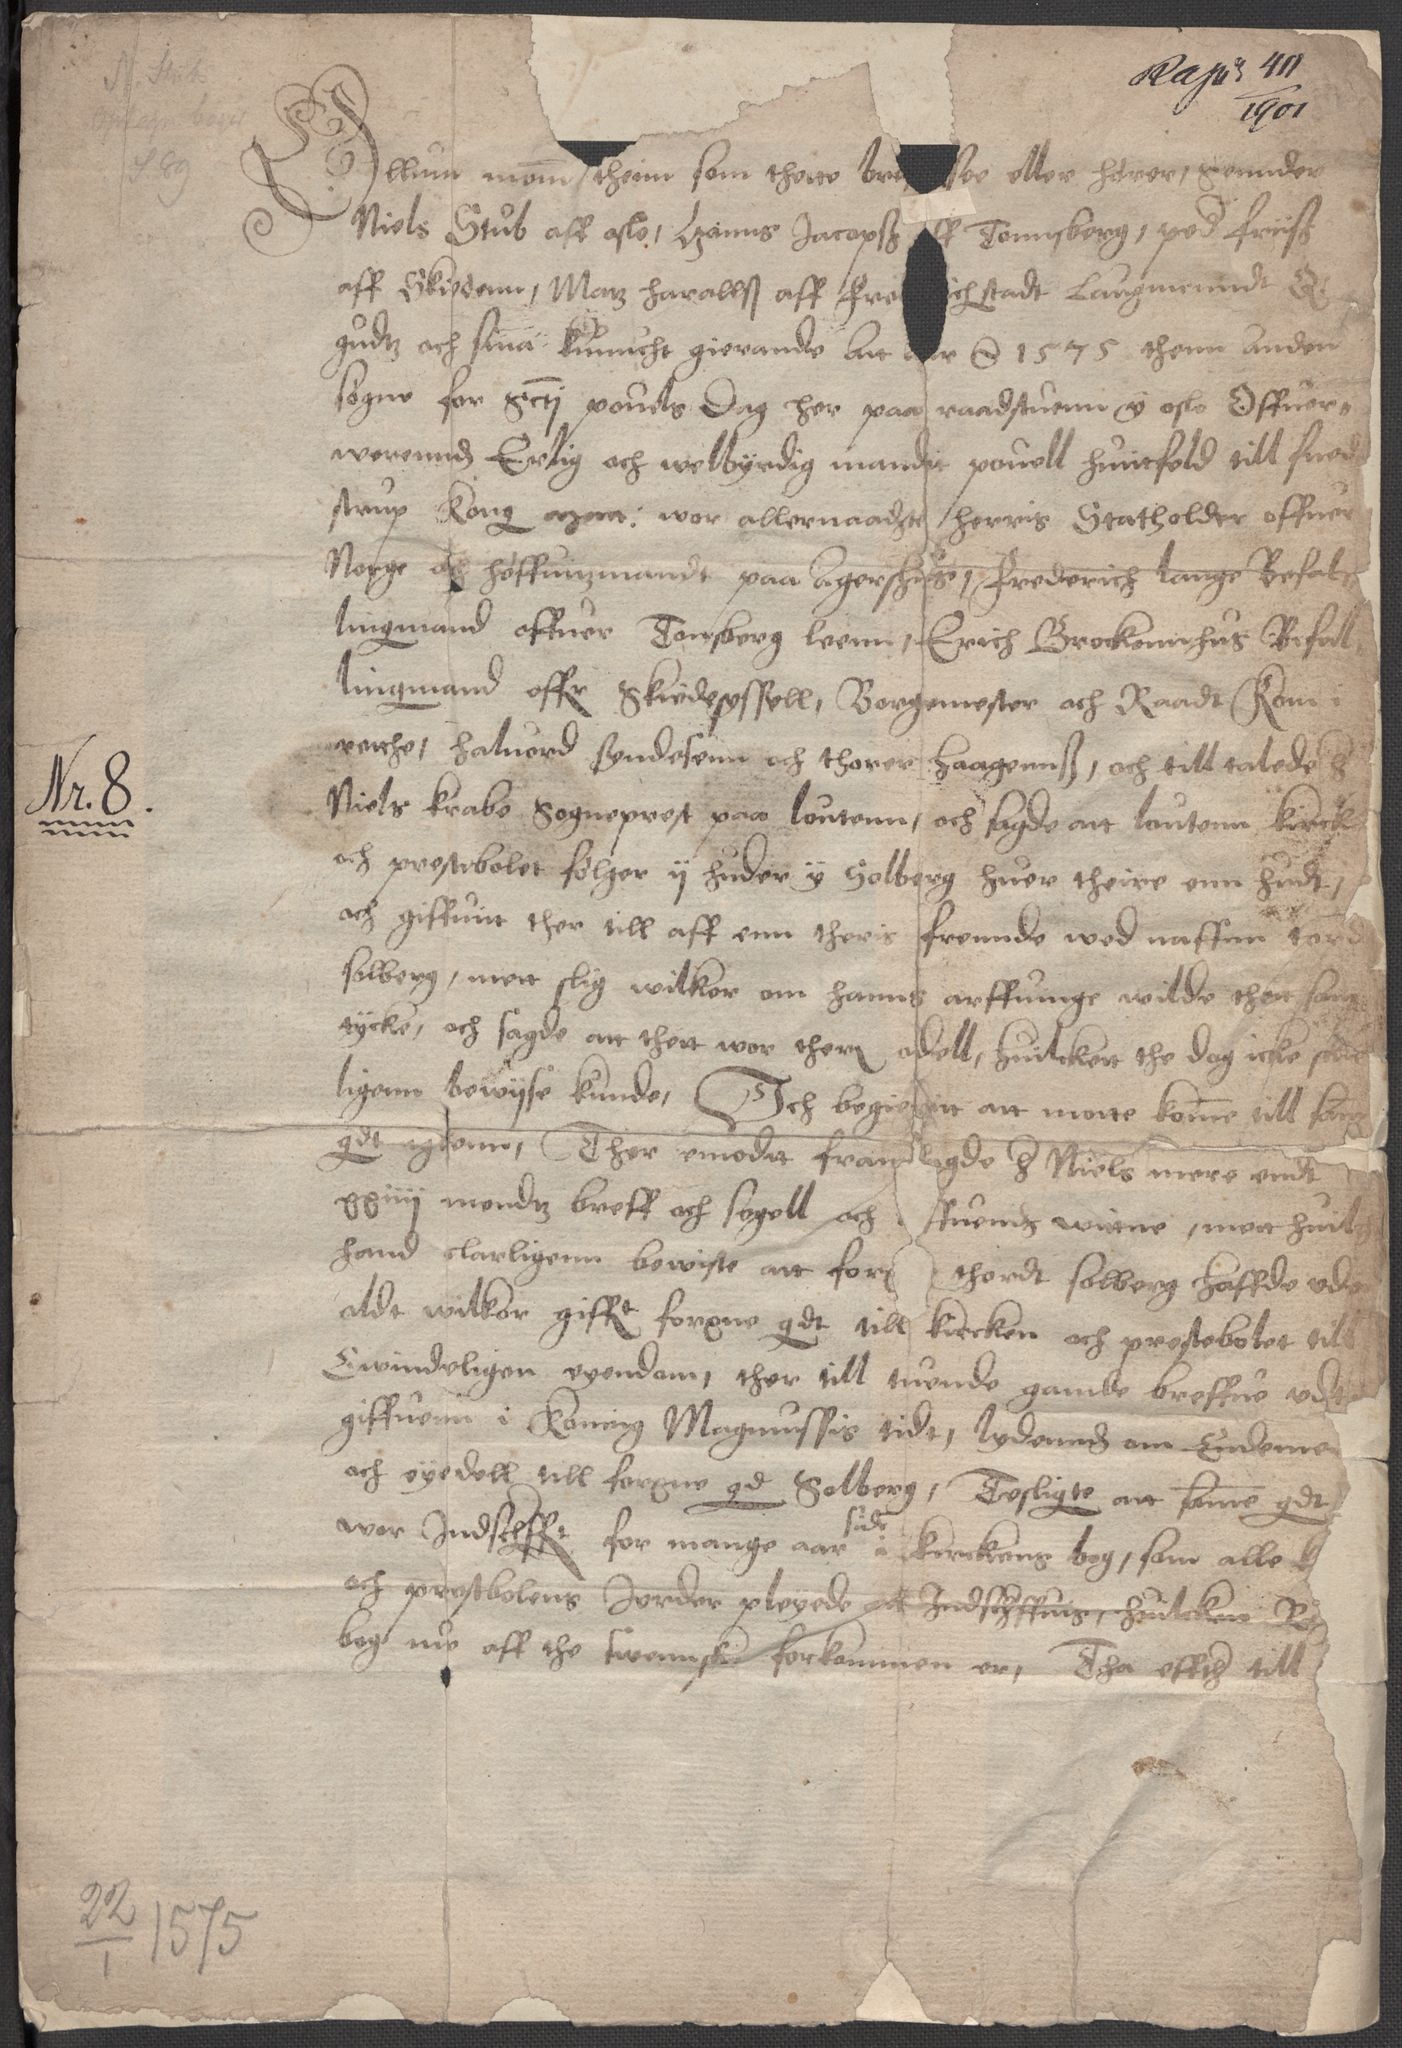 N. Stub
S 89
40
1901
Allum mom̄ theim som thette bre see eller hører, Sennder
Niels Stub aff oslo, Hanns Jacopß aff Tonnsberg, ped friiß
aff Skidenn, Matz harallß aff fre ich stadt Laugmenndt
gudtz och sina kunnucht gierande Att aar 1575 thenn anden
søgne for Scti pouels Dag her paa raadstuenn y oslo Offuer-
werennds Erlig och welbyrdig mandtt pouell huitfeld till
strup Kong matt: wor allernaadste herris Statholder offuer
Norge och høffuizmandt paa Agershus, Frederich lange Befal-
lingmand offuer Tonsberg leenn, Erich Brockennhus Befall-
lingmand offr Skiidesyssell, Borgemester och Raadt Kom i
rette, haluord syndesenn och thorer Haagennß, och till talede h
Niels krabe Sogneprest paa loutenn, och sagde att loutenn kirck
och prestebolet følger ij huder y Solberg huer theire enn hudt,
och giffuitt ther till aff enn theris frennde wed naffnn tord
solberg, mett slig wilkor om hanns arffuinge wilde thett sam
tycke, och sagde att thett wor theris odell, huilckett the dog icke
ligenn bewyse kunde, Och begieritt att motte komme till
gdt igienn, Ther emodtt fram lagde h Niels mere endt
xxiiij mendtz breff och segell och ffuends witne, mett huil
hand clarligenn bewiste att for thordt solberg haffde vde
aldt wilkor gifft forne gdt till kircken och prestebolet till
Ewindeligen eyendom, ther till tuende gamle breffue vdt
giffuenn i Koning Magnussis tidt, lydennds om Eindomen
och eyedell till forne gd Solberg, Tesligte att samme gdt
wor Indschfft for mange aar sidē i kirckens bog, som alle k
och prestbolens Jorder pleyede att Indschffuis, huilcken
bog nu aff the swenske forkommen er, Tha effth till
Nr. 8.
22
1
1575